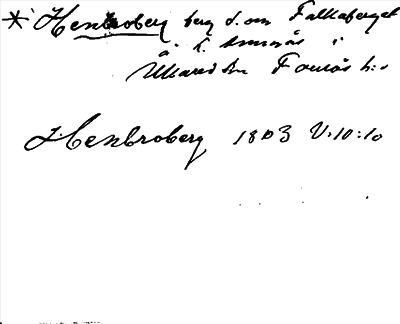 * Henbroberg berg S. om Falkaberget
å. t.
Ullared sn Faurås h:d
Henbroberg 1803 V:10:10